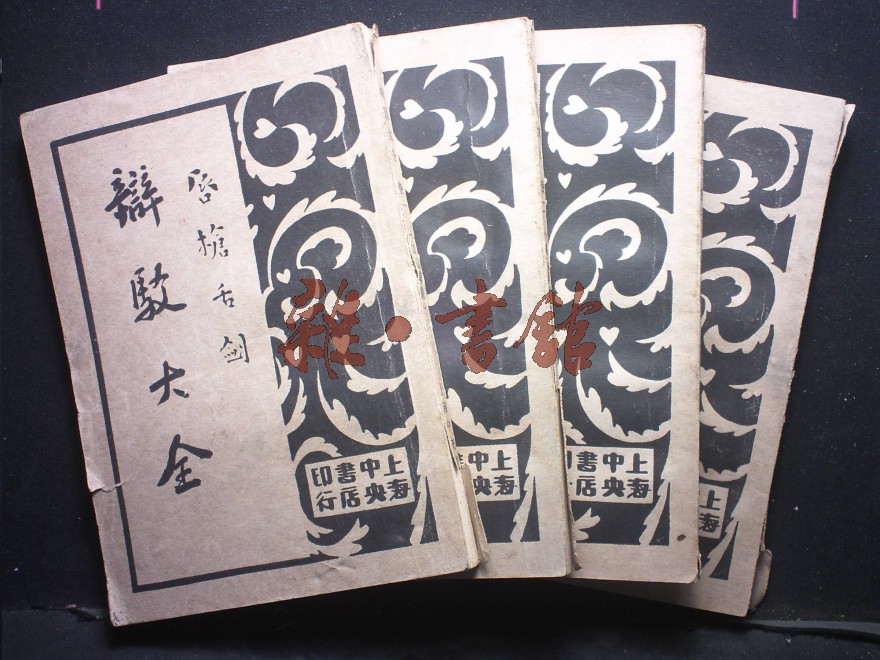 唇槍舌劍
辯駁大全
上海
中央
書店
印行
上海
中央
書店
印
上海
中央
上海
雜·書館